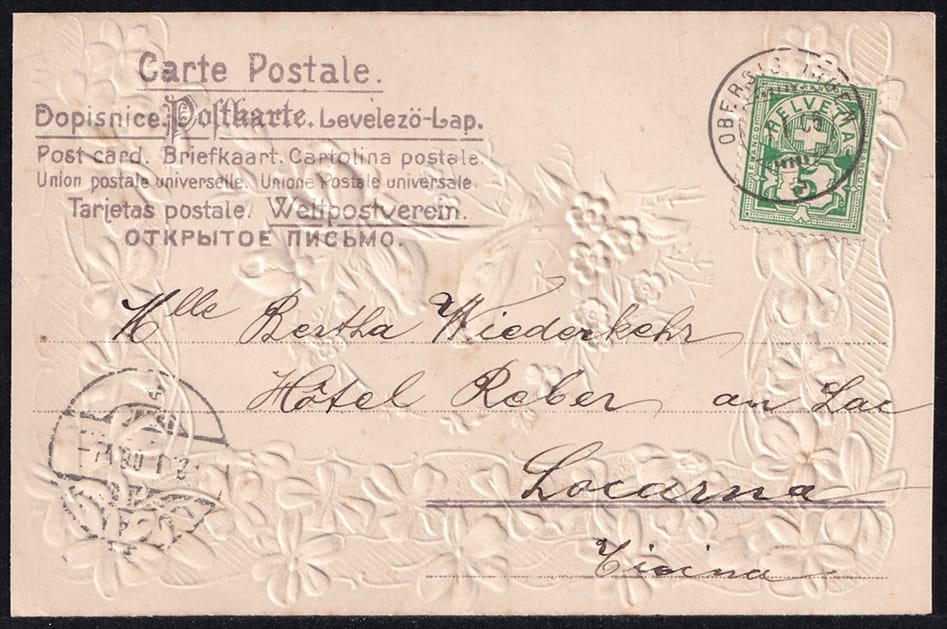 Carte Postale.
Dopisnice. Postkarte. Levelezö-Lap.
Post card. Briefkaart. Cartolina postale.
Union postale universelle. Unione Postale universale.
Tarjetas postale. Weltpostverein.
ОТКРЫТОЕ ПИСЬМО.
HELVETIA
5
Mlle Bertha Wiederkehr
Hôtel Reber an Lac
Locarna